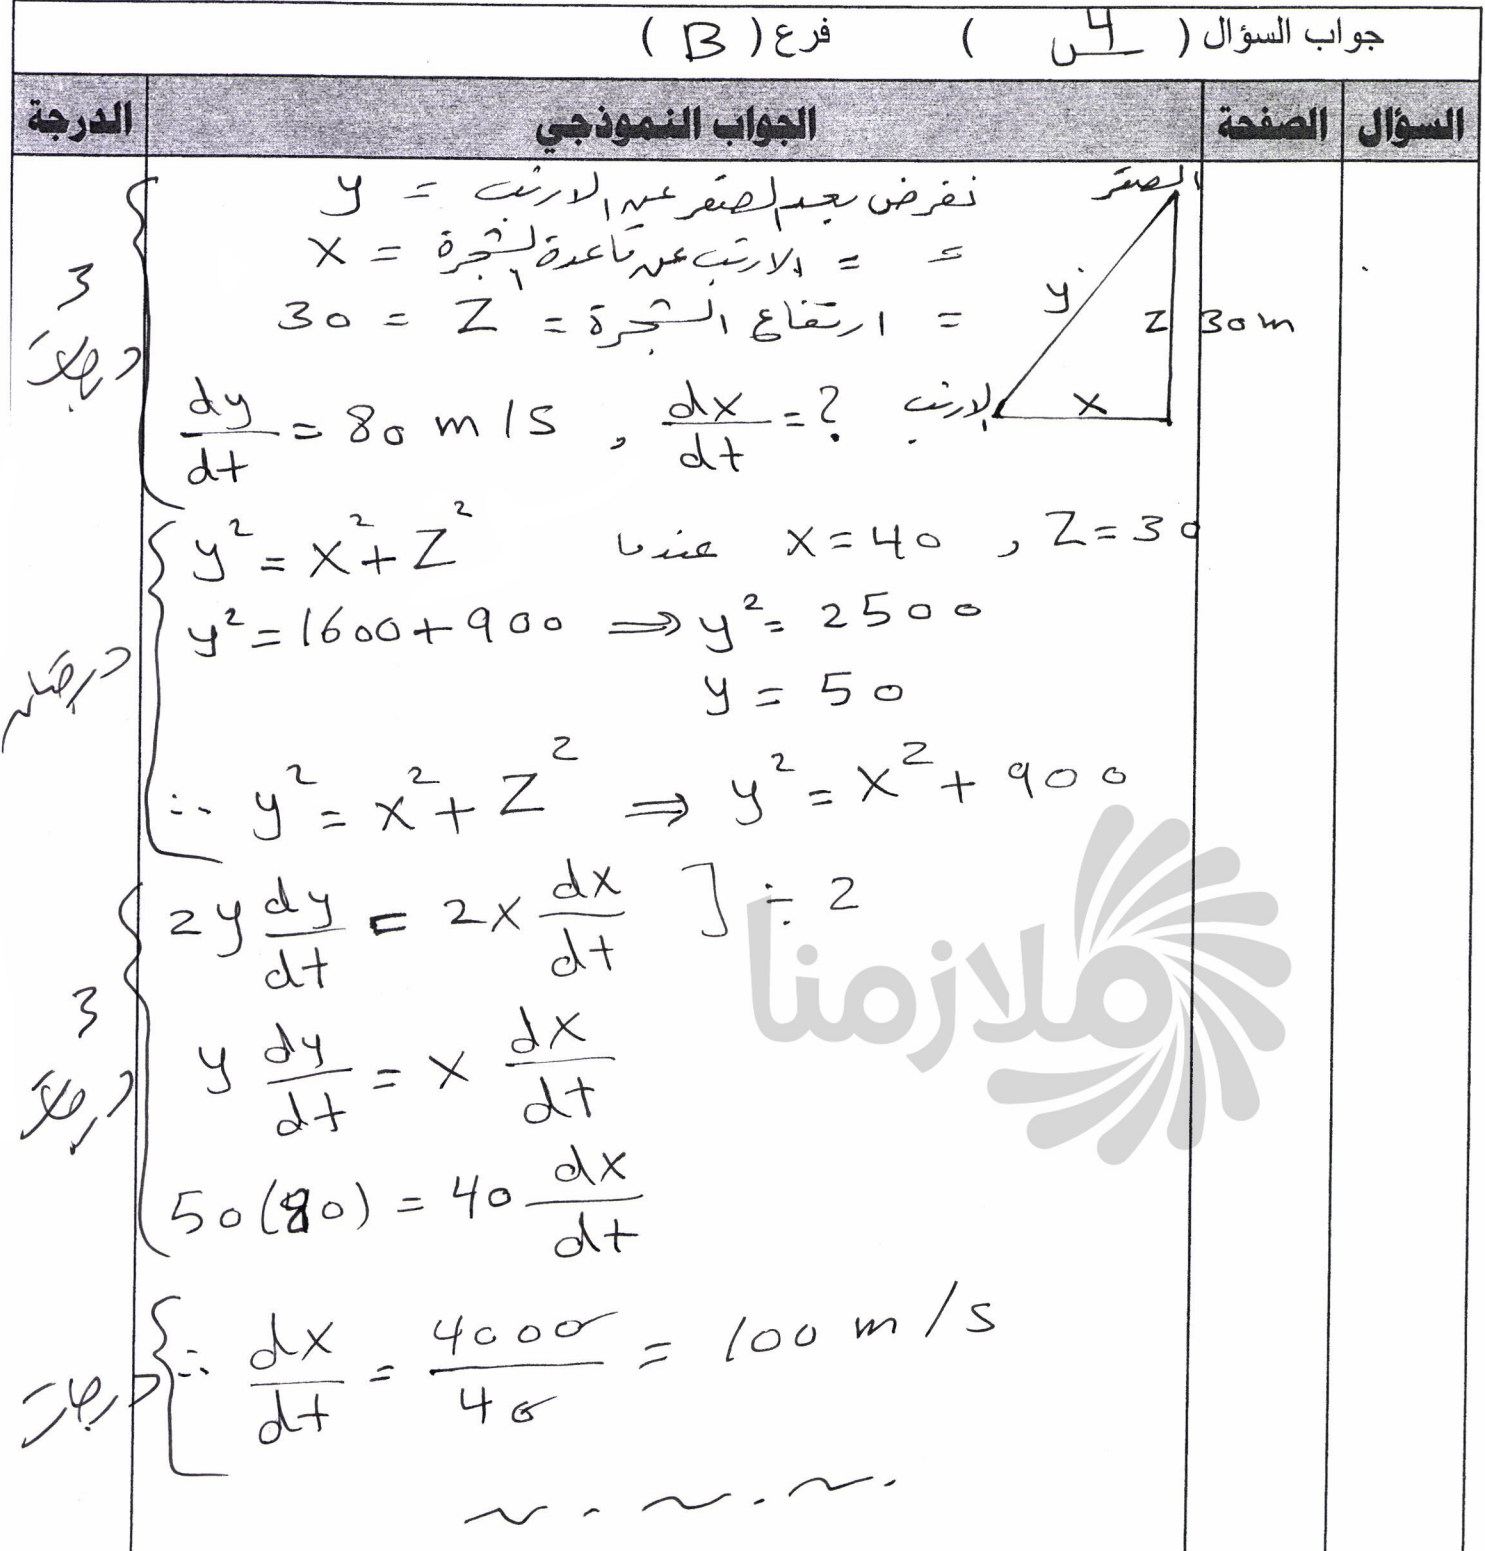 جواب السؤال ( س4 ) فرع ( B )
السؤال الصفحة الجواب النموذجي الدرجة
الصقر
نفرض بعد الصقر عن الارنب = y
= = الارنب عن قاعدة الشجرة = x
= ارتفاع الشجرة = Z = 30
y
Z 30m
x
الارنب
3 درجات
dy/dt = 80 m/s , dx/dt = ?
y² = x² + Z² عندما x = 40 , Z = 30
y² = 1600 + 900 ⇒ y² = 2500
y = 50
درجتان
∴ y² = x² + Z² ⇒ y² = x² + 900
2y dy/dt = 2x dx/dt ] ÷ 2
ملازمنا
3 درجات
y dy/dt = x dx/dt
50(80) = 40 dx/dt
∴ dx/dt = 4000/40 = 100 m/s